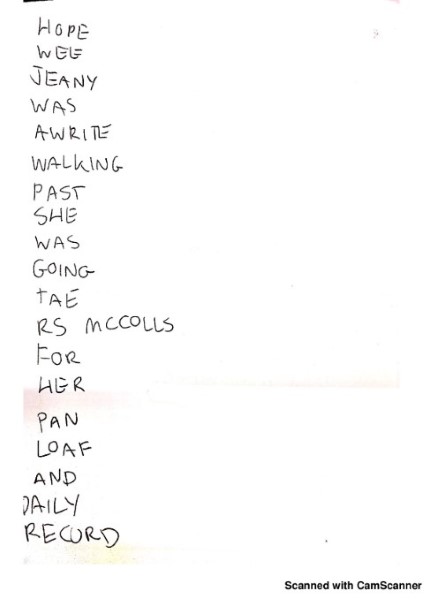 HOPE
WEE
JEANY
WAS
AWRITE
WALKING
PAST
SHE
WAS
GOING
TAE
RS MCCOLLS
FOR
HER
PAN
LOAF
AND
DAILY
RECORD
Scanned with CamScanner